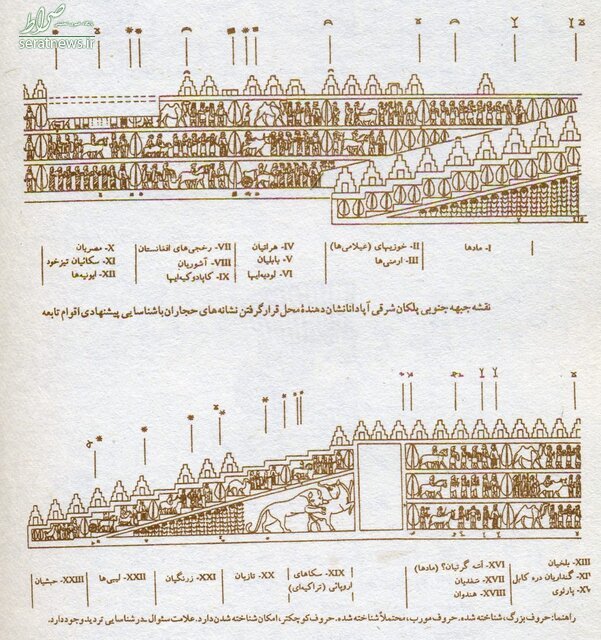 صراط
seratnews.ir
I- مادها
II- خوزیهای (عیلامی‌ها)
III- ارمنی‌ها
IV- هراتیان
V- بابلیان
VI- لودیه‌ایها
VII- رخجی‌های افغانستان
VIII- آشوریان
IX- کاپادوکیه‌ایها
X- مصریان
XI- سکائیان تیزخود
XII- ایونیه‌ها
نقشه جبهه جنوبی پلکان شرقی آپادانا نشان دهندهٔ محل قرار گرفتن نشانه‌های حجاران با شناسایی پیشنهادی اقوام تابعه
XIII- بلخیان
گنداریان دره کابل
پارثوی
XVI- آسه گرتیان؟ (مادها)
XVII- سغدیان
XVIII- هندوان
XIX- سکاهای
اروپائی (تراکیه‌ای)
XX- تازیان
XXI- زرنگیان
XXII- لیبی‌ها
XXIII- حبشیان
راهنما: حروف بزرگ، شناخته شده. حروف مورب، محتملاً شناخته شده. حروف کوچکتر، امکان شناخته شدن دارد. علامت سئوال ـ در شناسایی تردید وجود دارد.